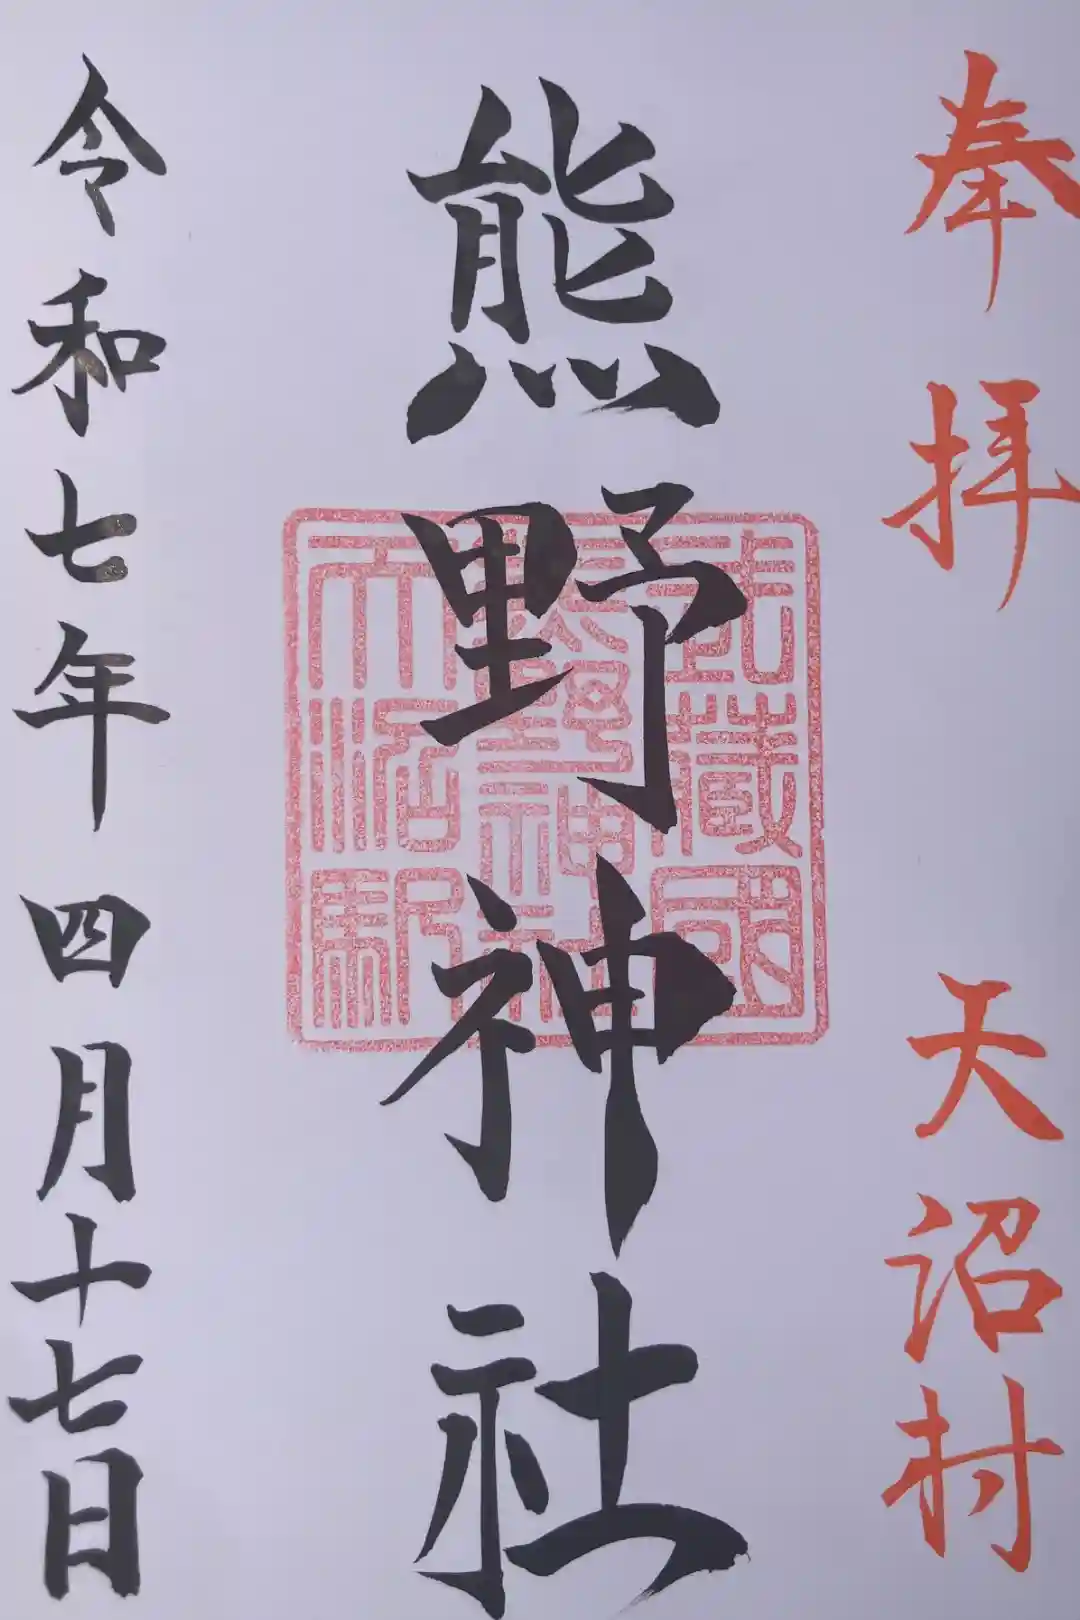 奉拝 天沼村
熊野神社
令和七年四月十七日
武蔵國
天沼郷